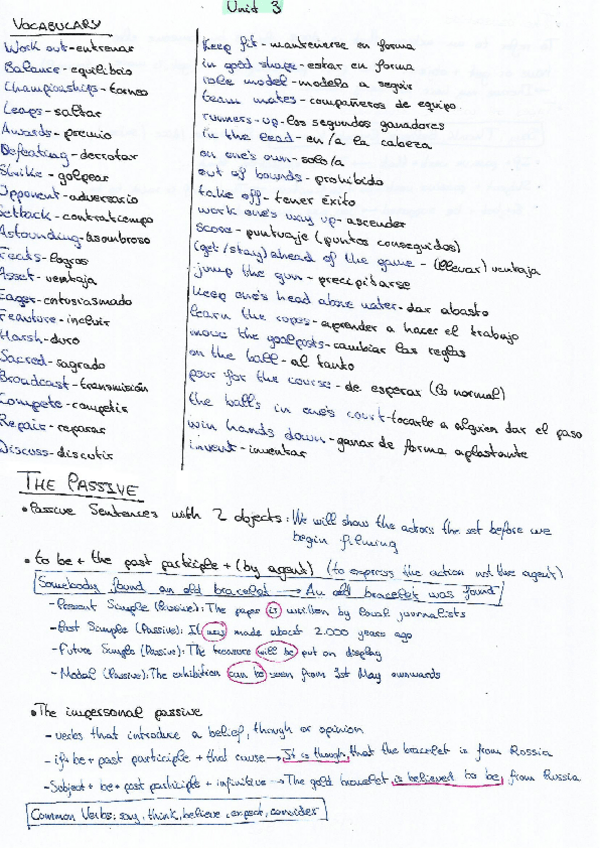 Unit 3
VOCABULARY
Work out - entrenar
Balance - equilibrio
Championships - torneo
Leaps - saltar
Awards - premio
Defeating - derrotar
Strike - golpear
Opponent - adversario
Setback - contratiempo
Astounding - asombroso
Feats - logros
Asset - ventaja
Eager - entusiasmado
Feauture - incluir
Harsh - duro
Sacred - sagrado
Broadcast - transmisión
Compete - competir
Repair - reparar
Discuss - discutir
Keep fit - mantenerse en forma
in good shape - estar en forma
role model - modelo a seguir
team mates - compañeros de equipo.
runners - up - los segundos ganadores
in the lead - en/a la cabeza
on one's own - solo/a
out of bounds - prohibido
take off - tener éxito
work one's way up - ascender
score - puntuaje (puntos conseguidos)
(get/stay) ahead of the game - (llevar) ventaja
jump the gun - precipitarse
keep one's head above water - dar abasto
learn the ropes - aprender a hacer el trabajo
move the goalposts - cambiar las reglas
on the ball - al tanto
pour for the course - de esperar (lo normal)
the ball's in one's court - tocarle a alguien dar el paso
win hands down - ganar de forma aplastante
invent - inventar
THE PASSIVE
• Passive Sentences with 2 objects: We will show the actors the set before we
begin filming
• to be + the past participle + (by agent) (to express the action not the agent)
Somebody found an old bracelet → An old bracelet was found
- Present Simple (Passive): The paper is written by local journalists
- Past Simple (Passive): It was made about 2.000 years ago
- Future Simple (Passive): The treasure will be put on display
- Modal (Passive): The exhibition can be seen from 1st May onwards
• The impersonal passive
- verbs that introduce a belief, though or opinion
- if + be + past participle + that cause → It is though, that the bracelet is from Rossia
- Subject + be + past participle + infinitive → The gold bracelet is believed to be, from Russia
Common Verbs: say, think, believe, expect, consider